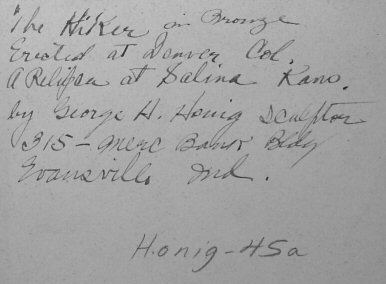 "The Hiker in Bronze
Erected at Denver Col.
A Replica at Salina Kans.
by George H. Honig Sculptor
315 - Merc Bank Bldg
Evansville Ind.
Honig-45a